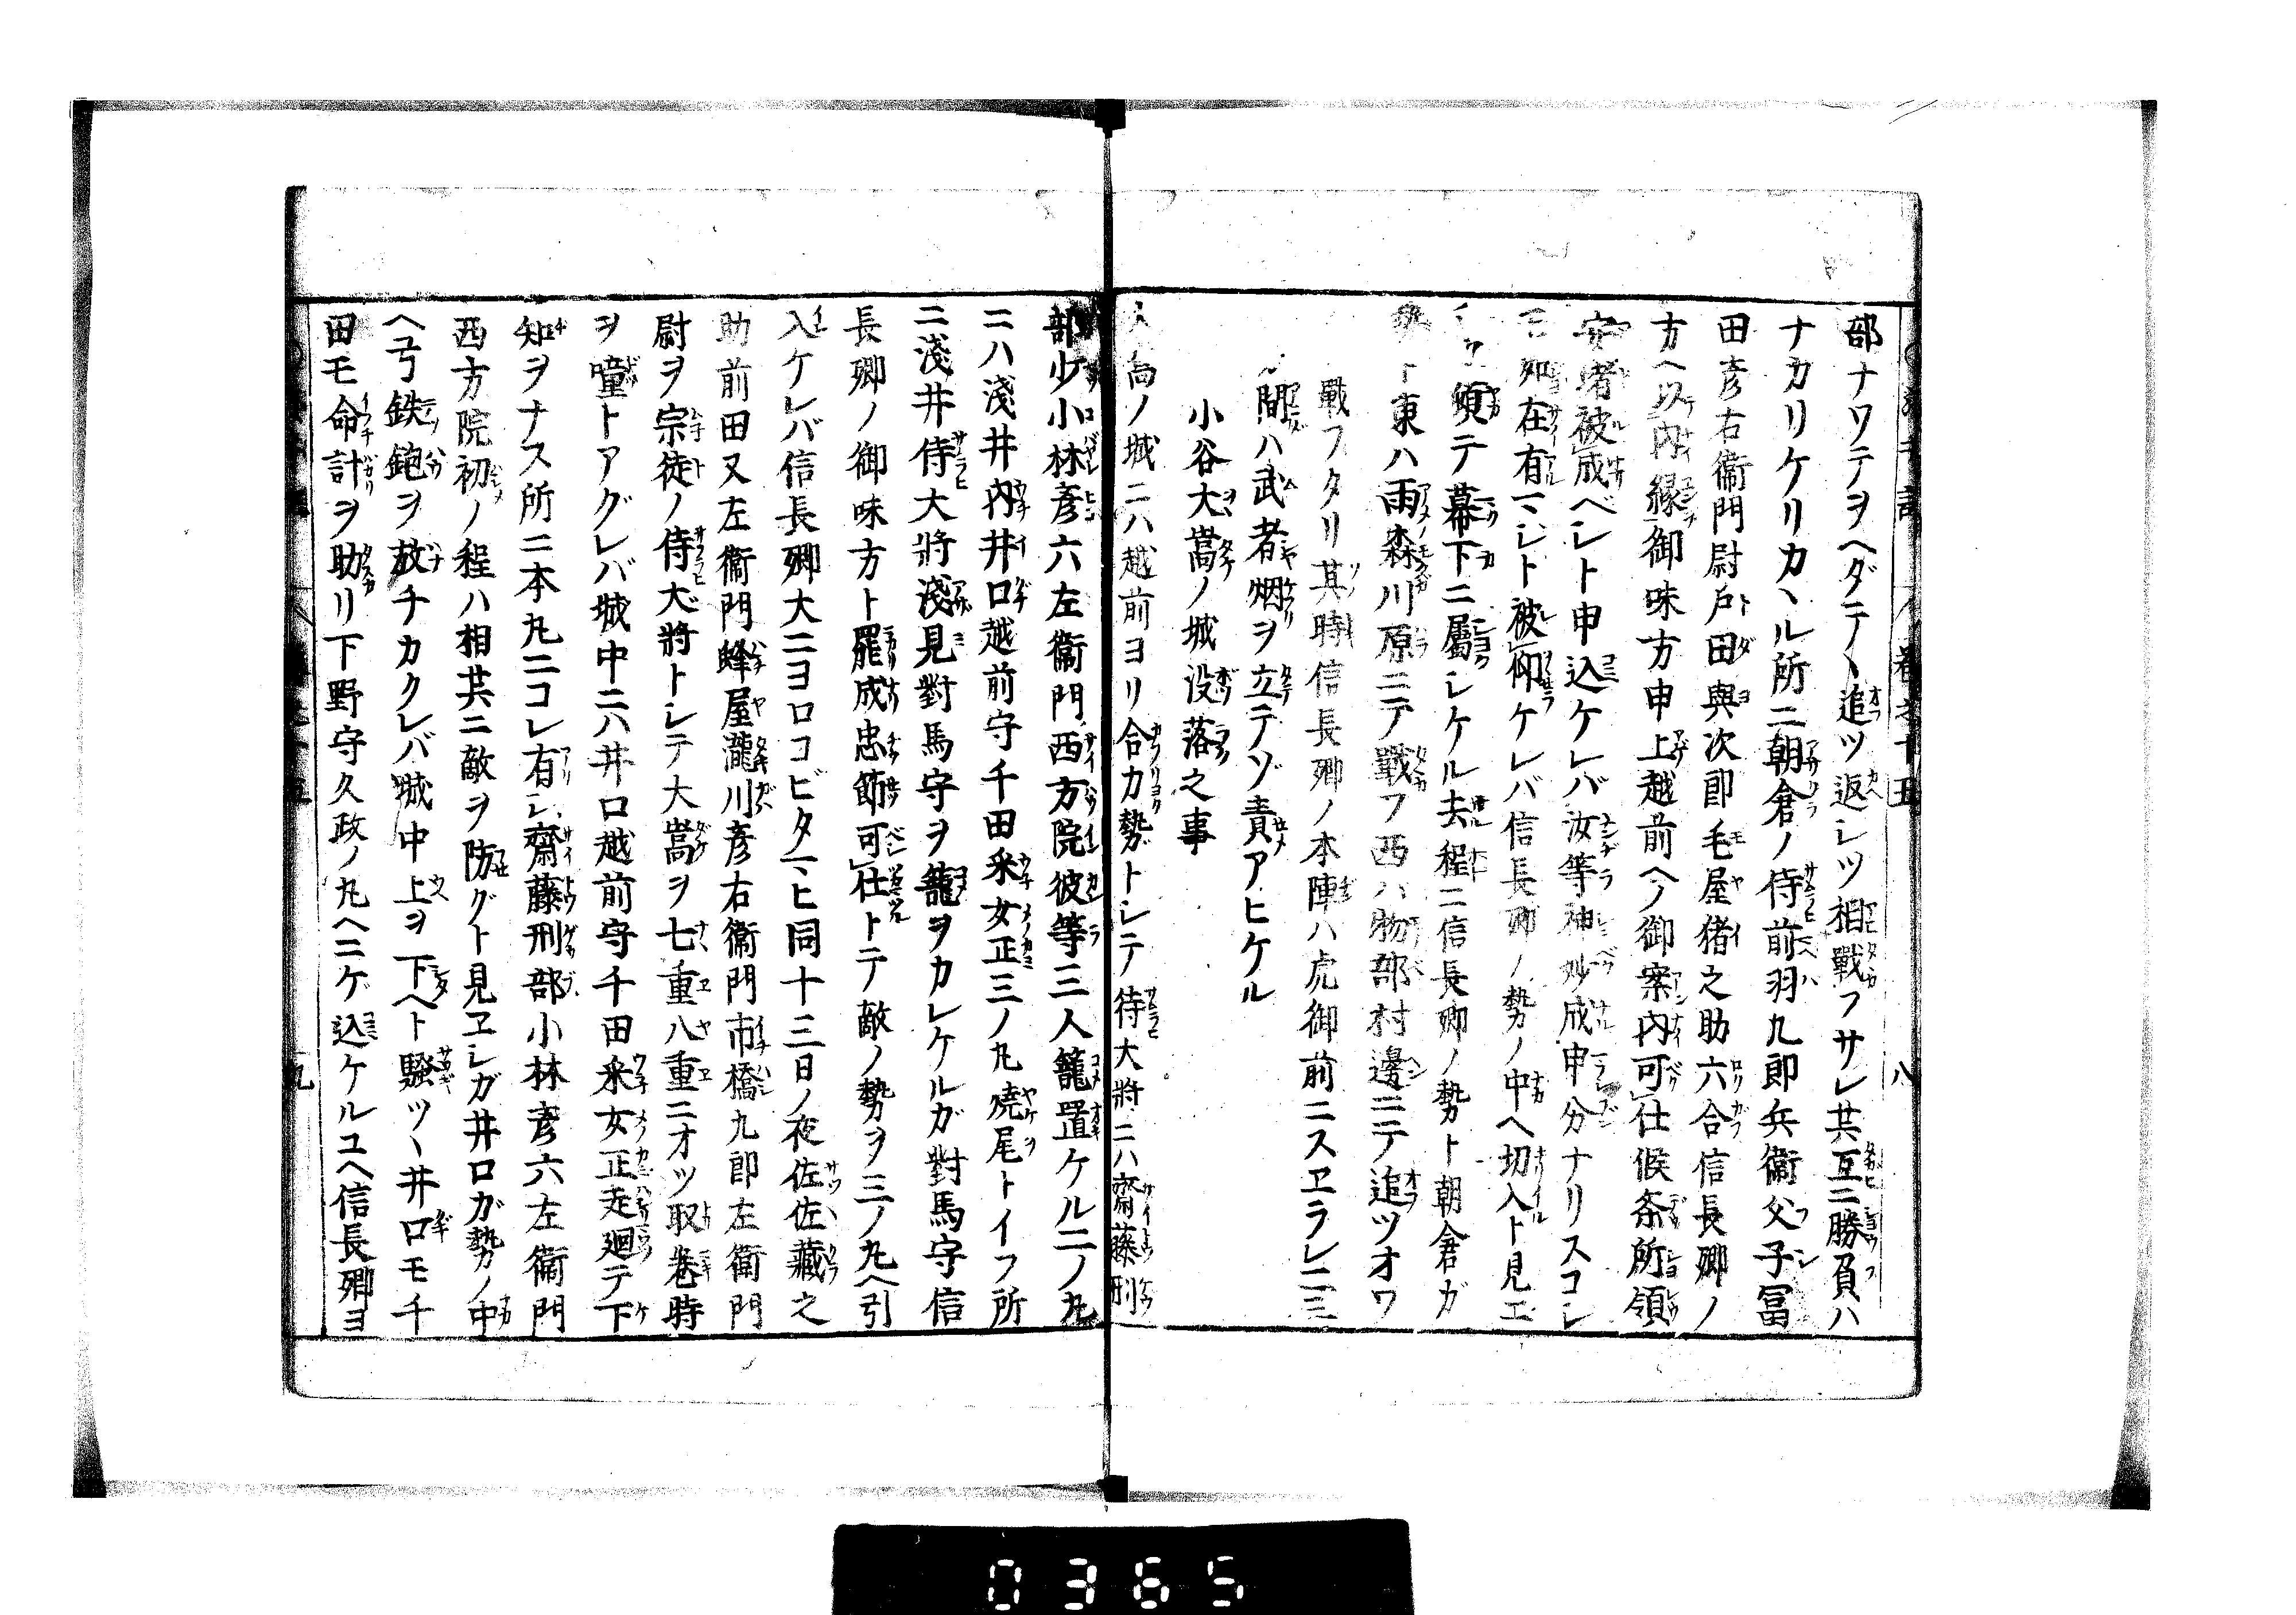 部ナワテヲヘダテヽ追ツ返シツ相戰フサレ共互ニ勝負ハ
ナカリケリカヽル所ニ朝倉ノ侍前羽九郎兵衞父子冨
田彦右衞門尉戸田與次郎毛屋猪之助六合信長郷ノ
方ヘ以内縁御味方申上越前ヘノ御案内可仕候条所領
安堵被成ベシト申込ケレバ汝等神妙成申分ナリスコシ
如在有マシト被仰ケレバ信長郷ノ勢ノ中ヘ切入ト見エ
頻テ幕下ニ屬シケル去程ニ信長郷ノ勢ト朝倉ガ
勢ト東ハ雨森川原ニテ戰フ西ハ物部村邊ニテ追ツオワ
戰フタリ其時信長郷ノ本陣ハ虎御前ニスヱラレ二三
間ハ武者烟ヲ立テゾ責アヒケル
小谷大嵩ノ城没落之事
向ノ城ニハ越前ヨリ合力勢トシテ侍大將ニハ齋藤刑
部少小林彦六左衞門西方院彼等三人籠置ケル二ノ丸
ニハ淺井内井口越前守千田采女正三ノ丸燒尾トイフ所
ニ淺井侍大將淺見對馬守ヲ籠ヲカレケルガ對馬守信
長郷ノ御味方ト羅成忠節可仕トテ敵ノ勢ヲ三ノ丸ヘ引
入ケレバ信長郷大ニヨロコビタマヒ同十三日ノ夜佐佐藏之
助前田又左衞門蜂屋瀧川彦右衞門市橋九郎左衞門
尉ヲ宗徒ノ侍大將トシテ大嵩ヲ七重八重ニオツ取巻時
ヲ噇トアグレバ城中ニハ井口越前守千田采女正走廻テ下
知ヲナス所ニ本丸ニコレ有シ齋藤刑部小林彦六左衞門
西方院初ノ程ハ相共ニ敵ヲ防グト見ヱシガ井口ガ勢ノ中
ヘ弓鉄鉋ヲ放チカクレバ城中上ヲ下ヘト騒ツヽ井口モ千
田モ命計ヲ助リ下野守久政ノ丸ヘニゲ込ケルユヘ信長郷ヨ
巻之十五
八
九
0365